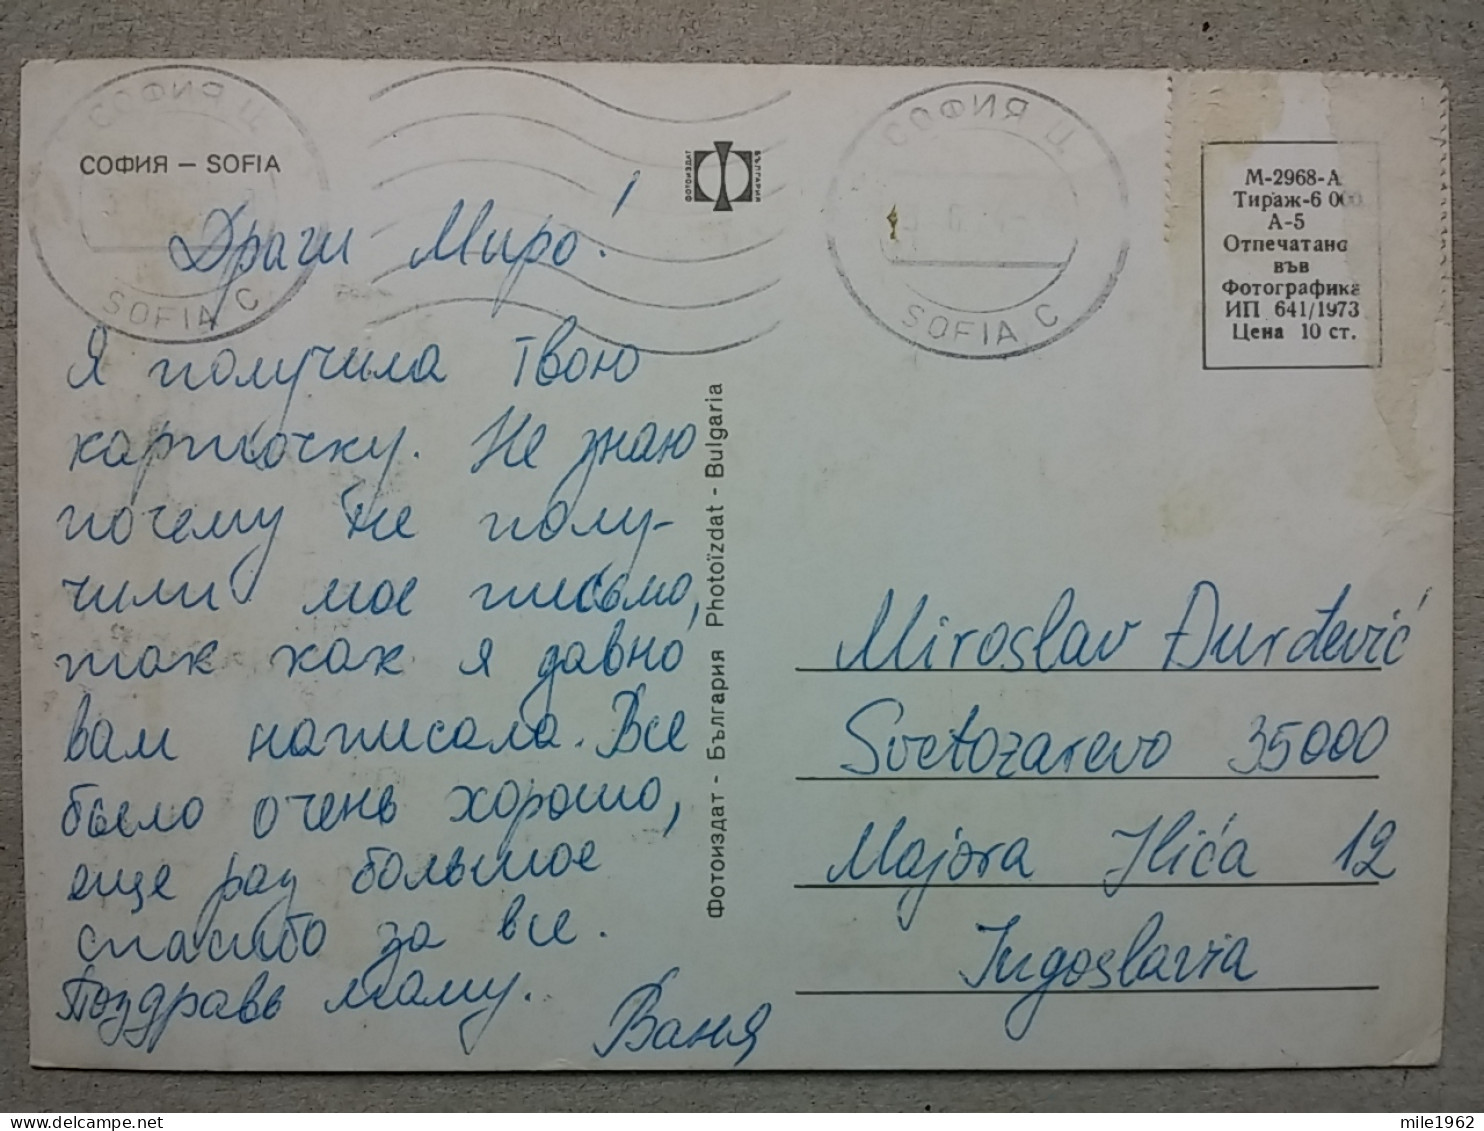 СОФИЯ Ц
SOFIA C
СОФИЯ – SOFIA
ФОТОИЗДАТ
БЪЛГАРИЯ
СОФИЯ Ц
SOFIA C
М-2968-А
Тираж-6 000
А-5
Отпечатано
във
Фотографика
ИП 641/1973
Цена 10 ст.
Драги Миро!
Я получила твою
карточку. Не знаю
почему не полу-
чили мое письмо,
так как я давно
вам написала. Все
было очень хорошо,
еще раз большое
спасибо за все.
Поздравь маму.
Ваня
Фотоиздат - България Photoïzdat - Bulgaria
Miroslav Đurđević
Svetozarevo 35000
Majora Ilića 12
Jugoslavia
mile1962